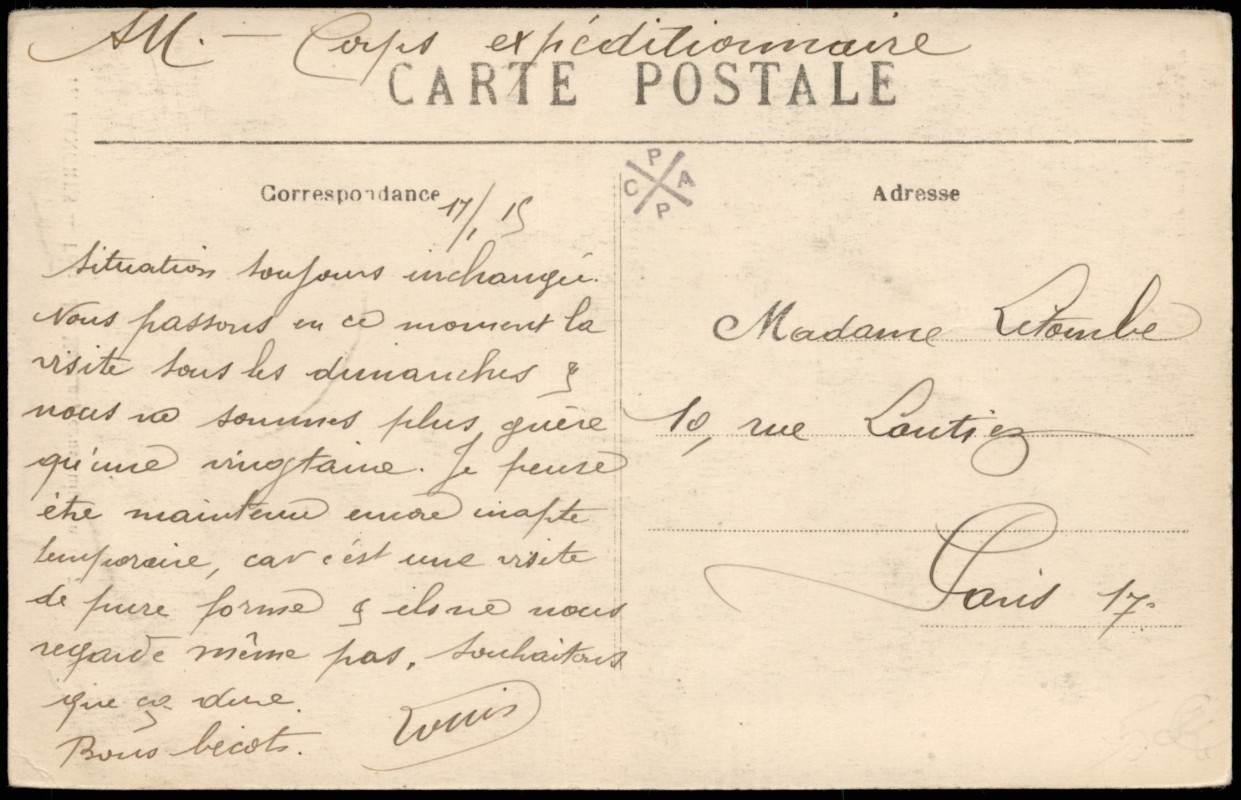 SM. - Corps expéditionnaire
CARTE POSTALE
Correspondance
17/1 15
P
C A
P
Adresse
Situation toujours inchangée.
Nous passons en ce moment la
visite tous les dimanches &
nous ne sommes plus guère
qu'une vingtaine. Je pense
être maintenu encore inapte
temporaire, car c'est une visite
de pure forme & ils ne nous
regarde même pas. Souhaitons
que ça dure.
Bons bécots. Louis
Madame Letombe
10, rue Lantiez
Paris 17e